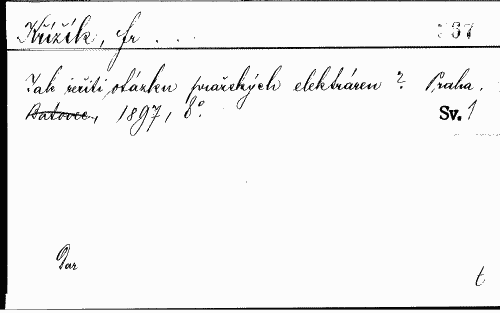 Křižík, Fr . . . 337
Jak řešiti otázku pražských elektráren? Praha.
1897, 8°. Sv. 1
Dar
t